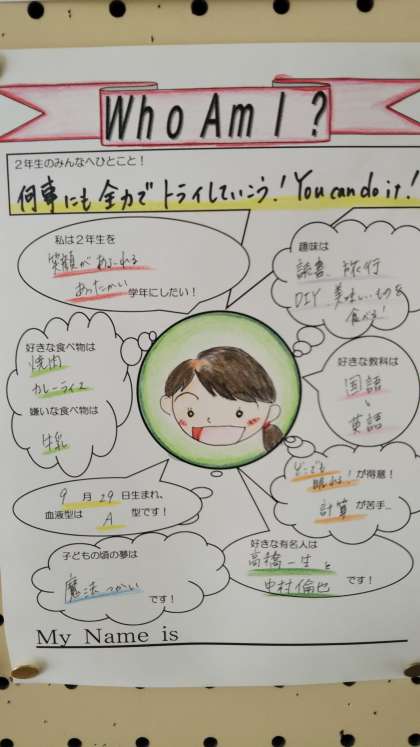 Who Am I?
2年生のみんなへひとこと!
何事にも全力でトライしていこう! You can do it!
私は2年生を
笑顔があふれる
あったかい 学年にしたい!
趣味は
読書、旅行
DIY 美味しいものを
食べる!
好きな食べ物は
焼肉
カレーライス
嫌いな食べ物は
牛乳
好きな教科は
国語
英語
9月29日生まれ、
血液型はA型です!
どこでも
眠れる!が得意!
計算が苦手…
子どもの頃の夢は
魔法つかい
です!
好きな有名人は
高橋一生と
中村倫也 です!
My Name is